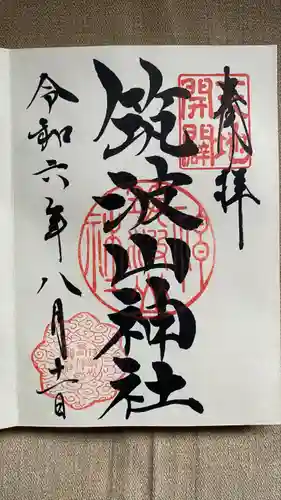 奉拝
天地開闢
筑波山神社
令和六年八月十一日